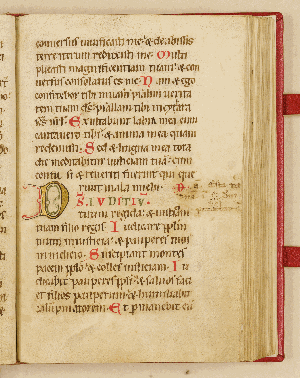 conuersus uiuificasti me: & de abissis
terre iterum reduxisti me. Multi
plicasti magnificentiam tuam: & con
uersus consolatus es me. Nam & ego
confitebor tibi in uasis psalmi uerita
tem tuam ds: psallam tibi in cythara
scs isrl. Exultabunt labia mea cum
cantauero tibi: & anima mea quam
redemisti. Sed & lingua mea tota
die meditabitur iusticiam tuam: cum
confusi & reueriti fuerint qui que
runt mala michi.
DS. IUDITIU
tuum regi da: & iusticiam
tuam filio regis. Iudicare pplm
tuum in iusticia: & pauperes tuos
in iudicio. Suscipiant montes
pacem pplo: & colles iusticiam. Iu
dicabit pauperes ppli: & saluos faci
et filios pauperum: & humiliabit
calumpniatorem. Et permanebit cu